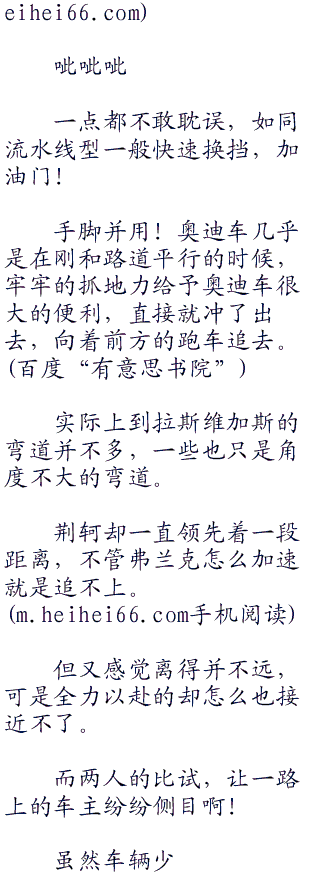 eihei66.com)
呲呲呲
一点都不敢耽误，如同
流水线型一般快速换挡，加
油门！
手脚并用！奥迪车几乎
是在刚和路道平行的时候，
牢牢的抓地力给予奥迪车很
大的便利，直接就冲了出
去，向着前方的跑车追去。
(百度“有意思书院”)
实际上到拉斯维加斯的
弯道并不多，一些也只是角
度不大的弯道。
荆轲却一直领先着一段
距离，不管弗兰克怎么加速
就是追不上。
(m.heihei66.com手机阅读)
但又感觉离得并不远，
可是全力以赴的却怎么也接
近不了。
而两人的比试，让一路
上的车主纷纷侧目啊！
虽然车辆少